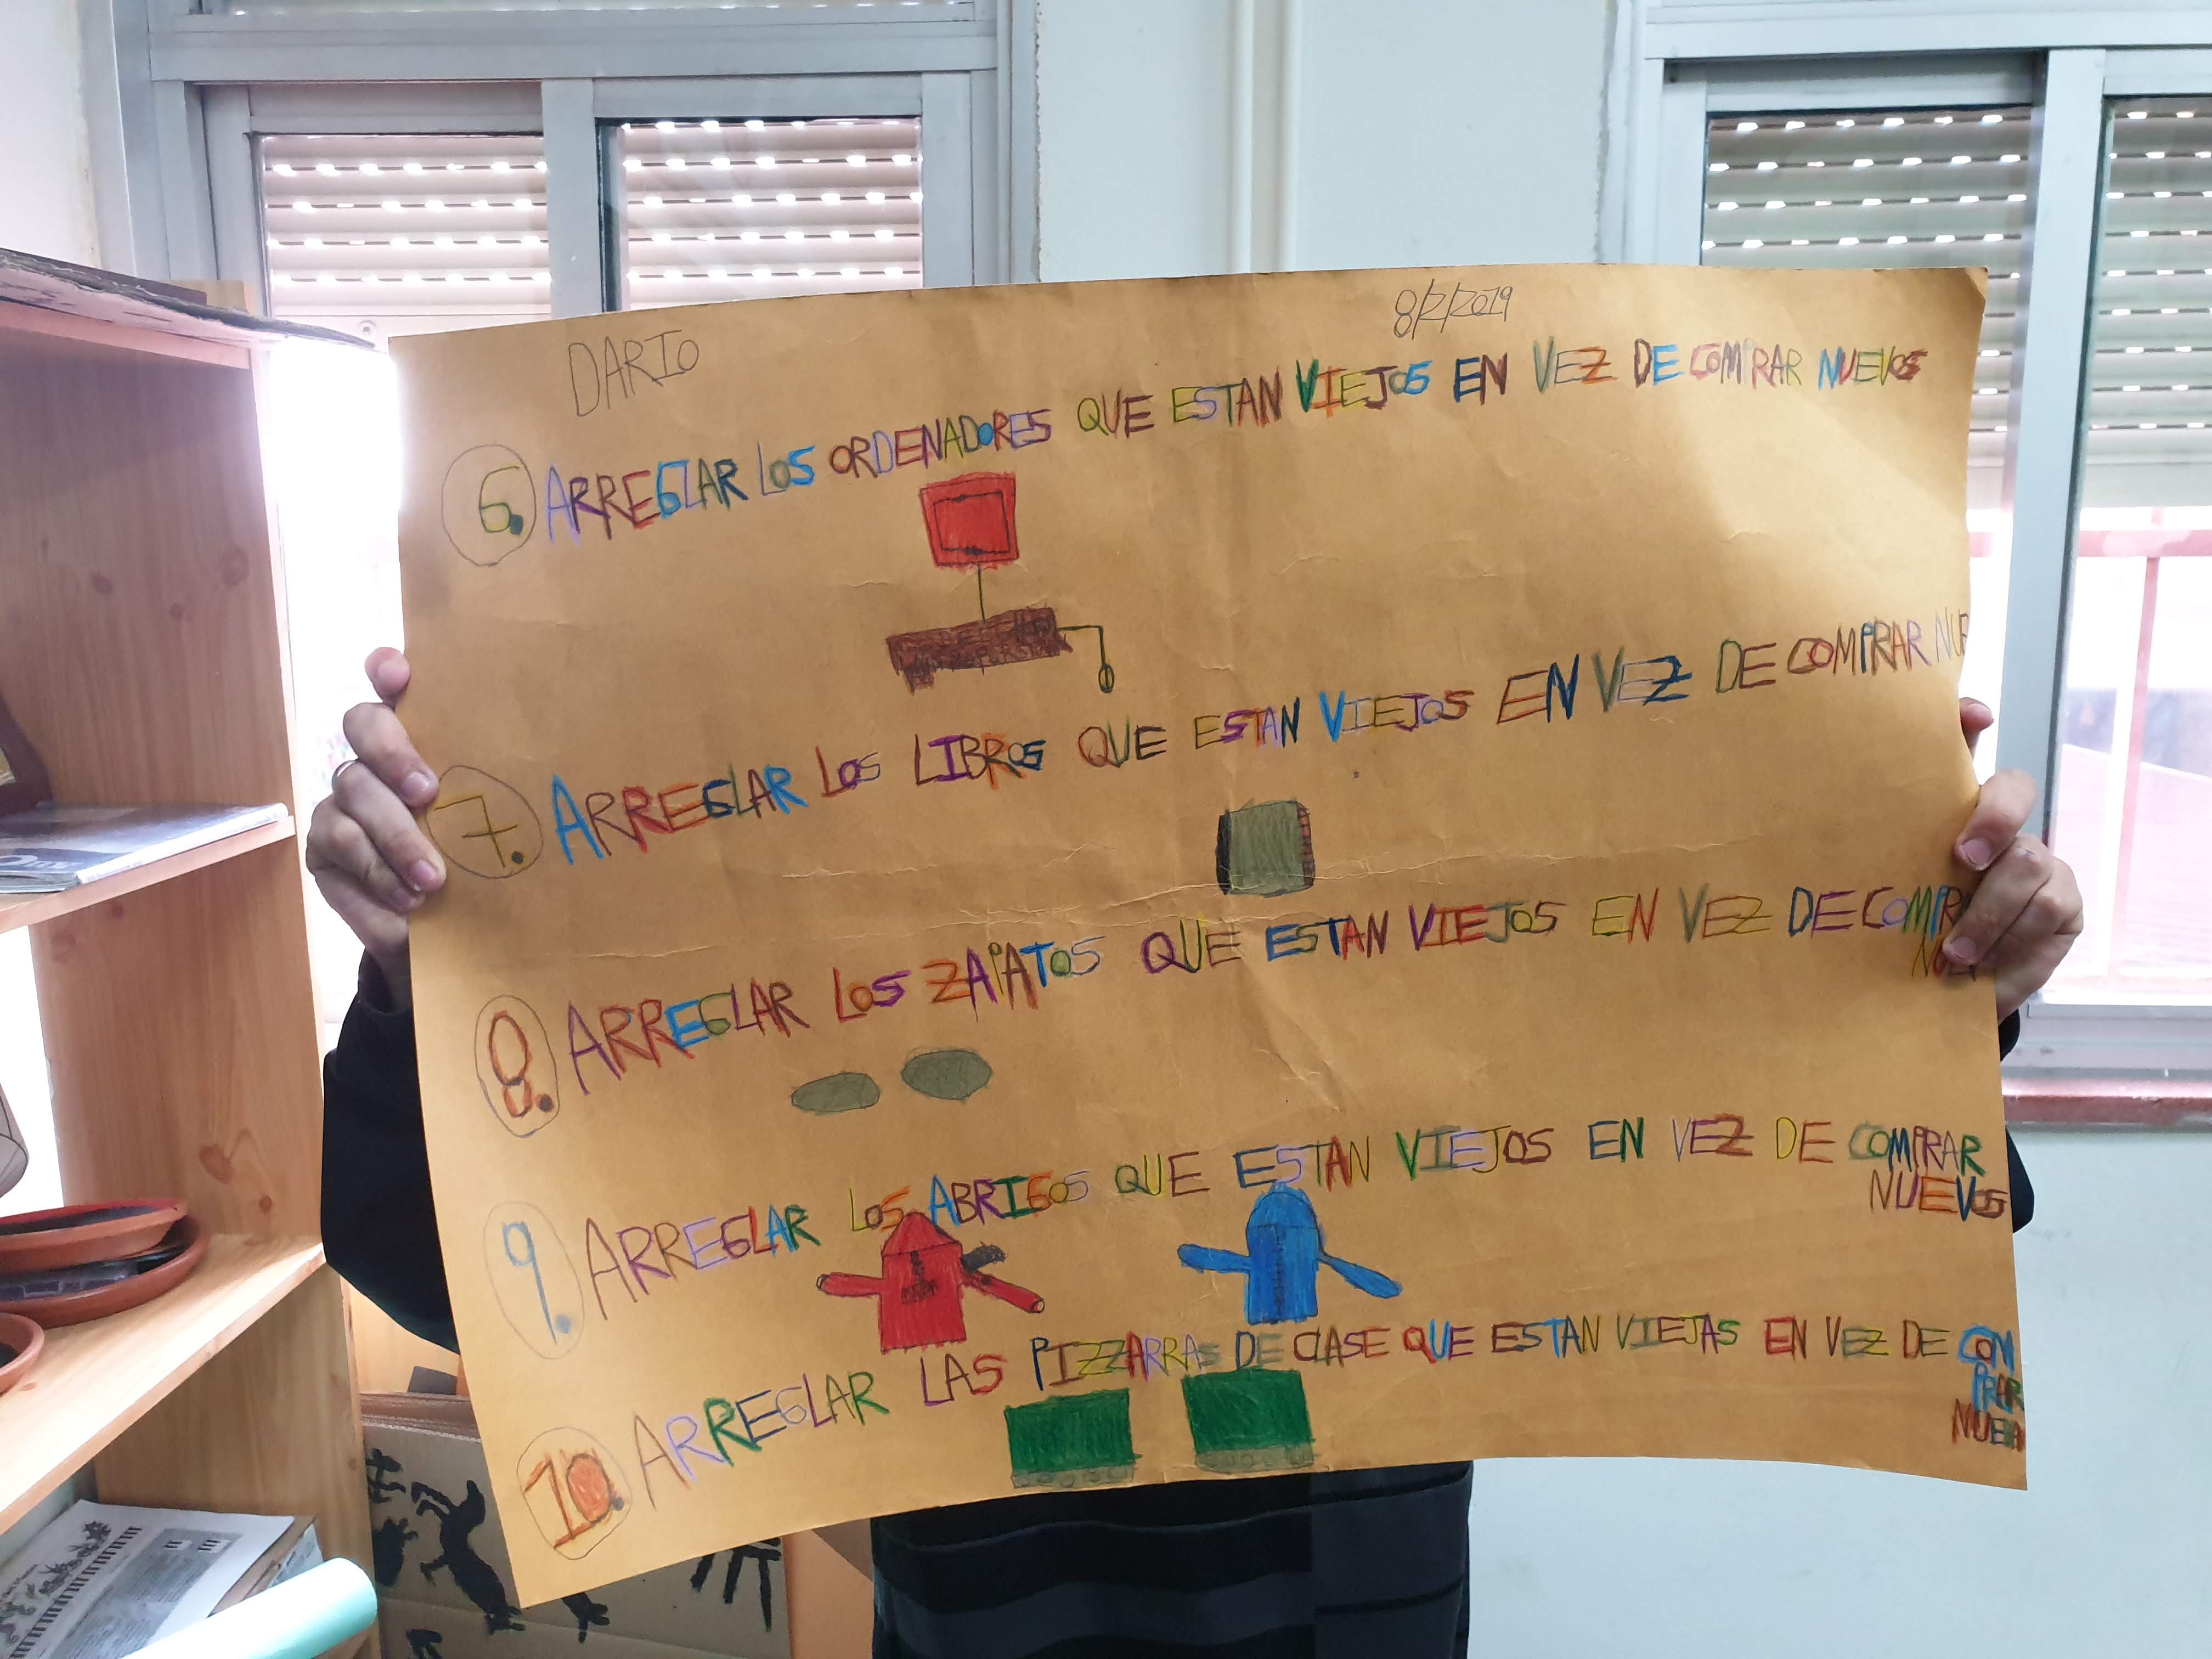 DARIO
8/2/2019
6. ARREGLAR LOS ORDENADORES QUE ESTAN VIEJOS EN VEZ DE COMPRAR NUEVOS
7. ARREGLAR LOS LIBROS QUE ESTAN VIEJOS EN VEZ DE COMPRAR
8. ARREGLAR LOS ZAPATOS QUE ESTAN VIEJOS EN VEZ DE
9. ARREGLAR LOS ABRIGOS QUE ESTAN VIEJOS EN VEZ DE COMPRAR
NUEVOS
10. ARREGLAR LAS PIZZARRAS DE CLASE QUE ESTAN VIEJAS EN VEZ DE COM
PRAR